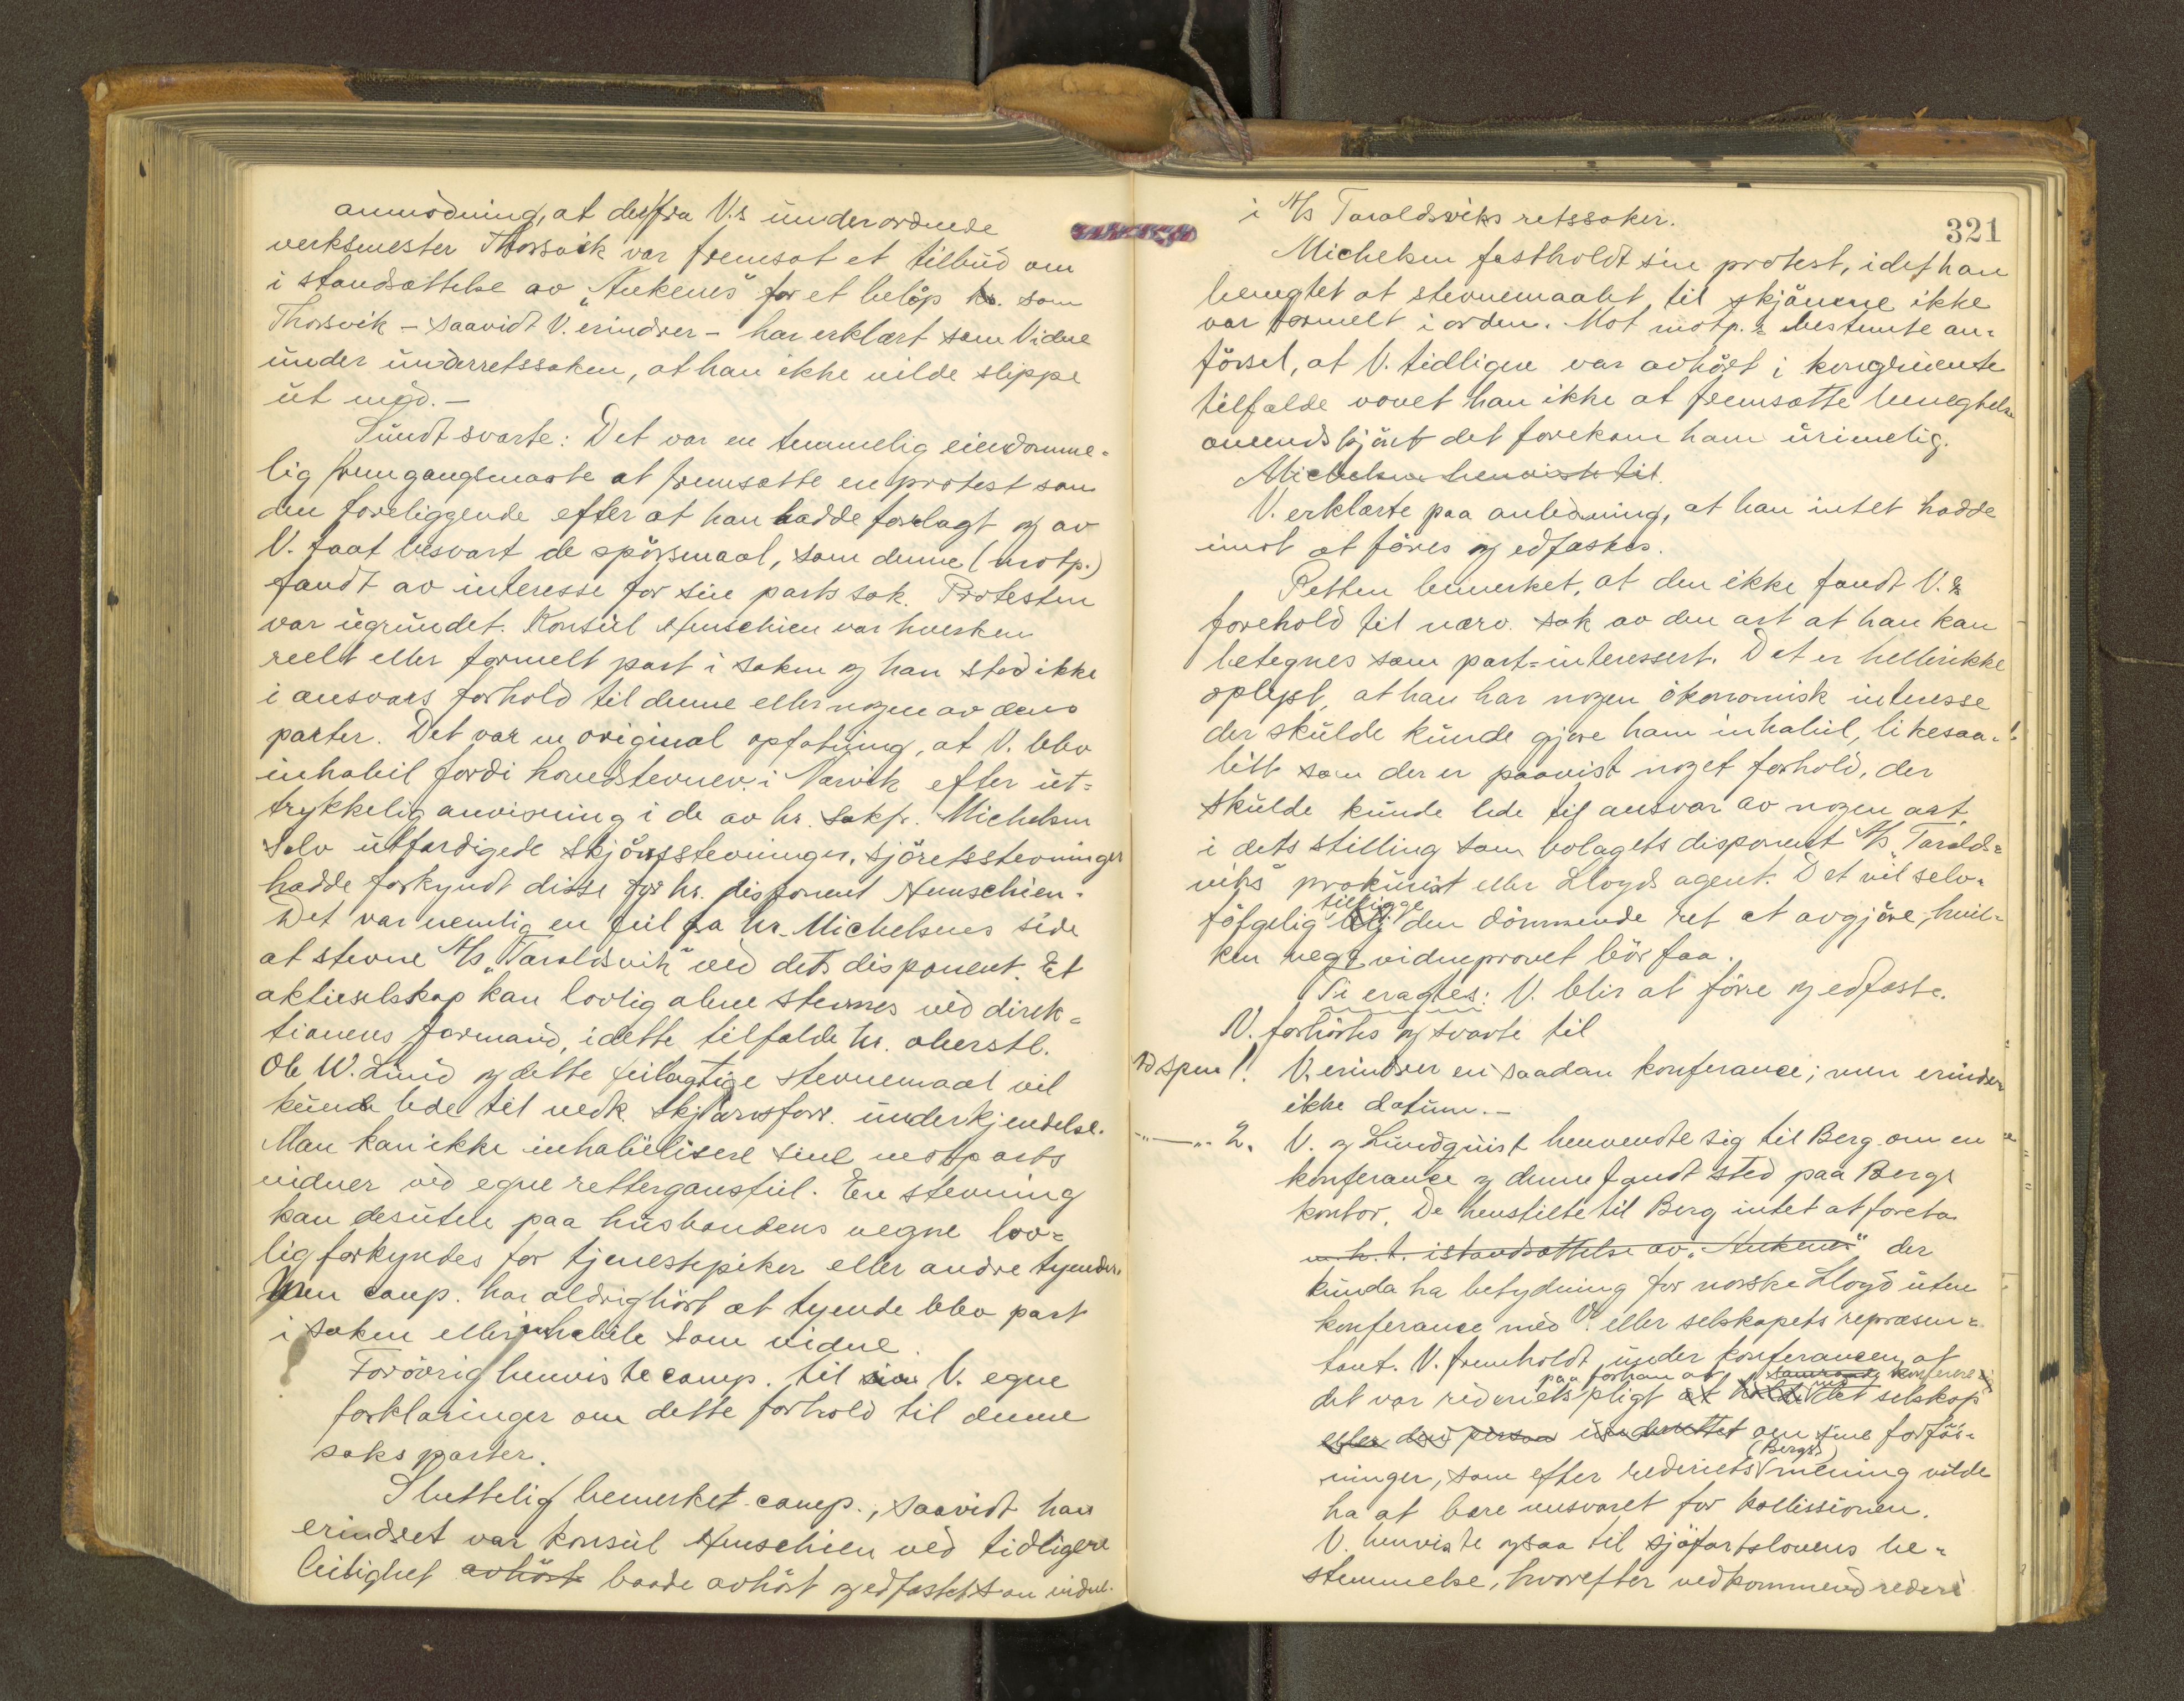 anmodning, at der fra V.s underordnede
verksmester Thorsvik var fremsat et tilbud om
i standsættelse av "Ankenes" for et beløp kr. som
Thorsvik - saavidt V. erindrer - har erklært som Vidne
under underretssaken, at han ikke vilde slippe
ut med. -
Sundt svarte: Det var en temmelig eiendomme-
lig fremgangsmaate at fremsætte en protest som
den foreliggende efter at han hadde forelagt og av
V. faat besvart de spörsmaal, som denne (motp.)
fandt av interesse for sin parts sak. Protesten
var ugrundet. Konsul Aenschien var hverken
reelt eller formelt part i saken og han stod ikke
i ansvars forhold til denne eller nogen av dens
parter. Det var en original opfatning, at V. blev
inhabil fordi hovedstevnev. i Narvik efter ut-
trykkelig anvisning i de av hr. sakf. Michelsen
selv utfærdigede skjönsstevninger, sjöretsstevninger
hadde forkyndt disse for hr. disponent Aenschien.
Det var nemlig en feil fra hr. Michelsens side
at stevne A/s "Taraldsvik" ved dets disponent. Et
aktieselskap kan lovlig alene stevnes ved direk-
tionens formand, i dette tilfælde hr. oberstl.
Ole W. Lund og dette feilagtige stevnemaal vil
kunde lede til vedk. skjönsforr. underkjendelse.
Man kan ikke inhabilisere sine motparts
vidner ved egne rettergangsfeil. En stevning
kan desuten paa husbondens vegne lov-
lig forkyndes for tjenestepiker eller andre tyender.
Men comp. har aldrig hört at tyende blev part
i saken eller inhabile som vidne.
Forövrig henviste comp. til V. egne
forklaringer om dette forhold til denne
saks parter.
Sluttelig bemerket comp., saavidt han
erindret var konsul Aenschien ved tidligere
leilighet avhört baade avhört og edfæstet som vidne.
321
i A/s Taraldsviks retssaker.
Michelsen fastholdt sin protest, idet han
benegtet at stevnemaalet til skjönene ikke
var formelt i orden. Mot motp.s bestemte an-
försel, at V. tidligere var avhört i kongruente
tilfælde vovet han ikke at fremsætte benegtelse
omendskjönt det forekom ham urimelig.
Michelsen henviste til.
V. erklærte paa anledning, at han intet hadde
imot at föres og edfæstes.
Retten bemerket, at den ikke fandt V.s
forehold til nærv. sak av den art at han kan
betegnes som part-interessert. Det er heller ikke
oplyst, at han har nogen ökonomisk interesse
der skulde kunde gjöre ham inhabil, likesaa-
litt som der er paavist noget forhold, der
skulde kunde lede til ansvar av nogen art
i dets stilling som bolagets disponent A/s "Taralds-
viks" prokurist eller Lloyds agent. Det vil selv-
fölgelig tilligge den dömmende ret at avgjöre, hvil-
ken vegt vidneprovet bör faa.
Ti eragtes: V. blir at före og edfæste.
V. forhörtes og svarte til
Ad spm 1. V. erindrer en saadan konferance; men erindrer
ikke datum. -
- " - 2. V. og Lundquist henvendte sig til Berg om en
konferance og denne fandt sted paa Bergs
kontor. De henstillet til Berg intet at foreta
m.h.t. istandsættelse av "Ankenes" der
kunde ha betydning for norske Lloyd uten
konferance med V. eller selskapets repræsen-
tant. V. fremholdt under konferancen, at
paa forhan at konferere
det var rederiets pligt med det selskap
eller den person underrettet om sine forföi-
(Bergs)
ninger, som efter rederiets mening vilde
ha at bære ansvaret for kollissionen.
V. henviste ogsaa til sjöfartslovens be-
stemmelse, hvorefter vedkommend rederi